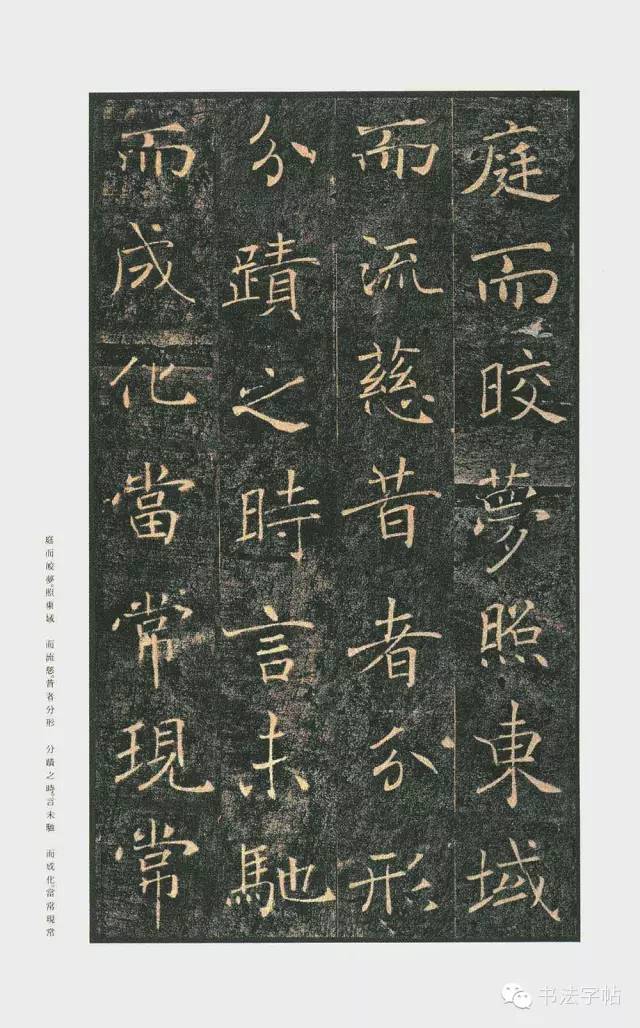 庭而晈夢照東域
而流慈昔者分形
分蹟之時言未馳
而成化當常現常
庭而皎夢。照東域　而流慈。昔者分形　分蹟之時。言未馳　而成化。當常現常
书法字帖